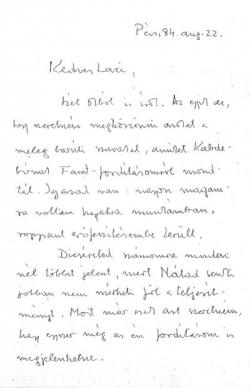 Pécs, 84. aug. 22.
Kedves Laci,
két okból is írok. Az egyik az,
hogy szeretném megköszönni azokat a
meleg baráti szavakat, amiket
Faust-fordításomról mond-
tál. Igazad van: nagyon magam-
ra voltam hagyatva munkámban,
roppant erőfeszítésembe került.
Dicséreted számomra minden-
nél többet jelent, mert Nálad senki
jobban nem mérheti föl a teljesít-
ményt. Most már csak azt szeretném,
hogy egyszer még az én fordításom is
megjelenhetne.